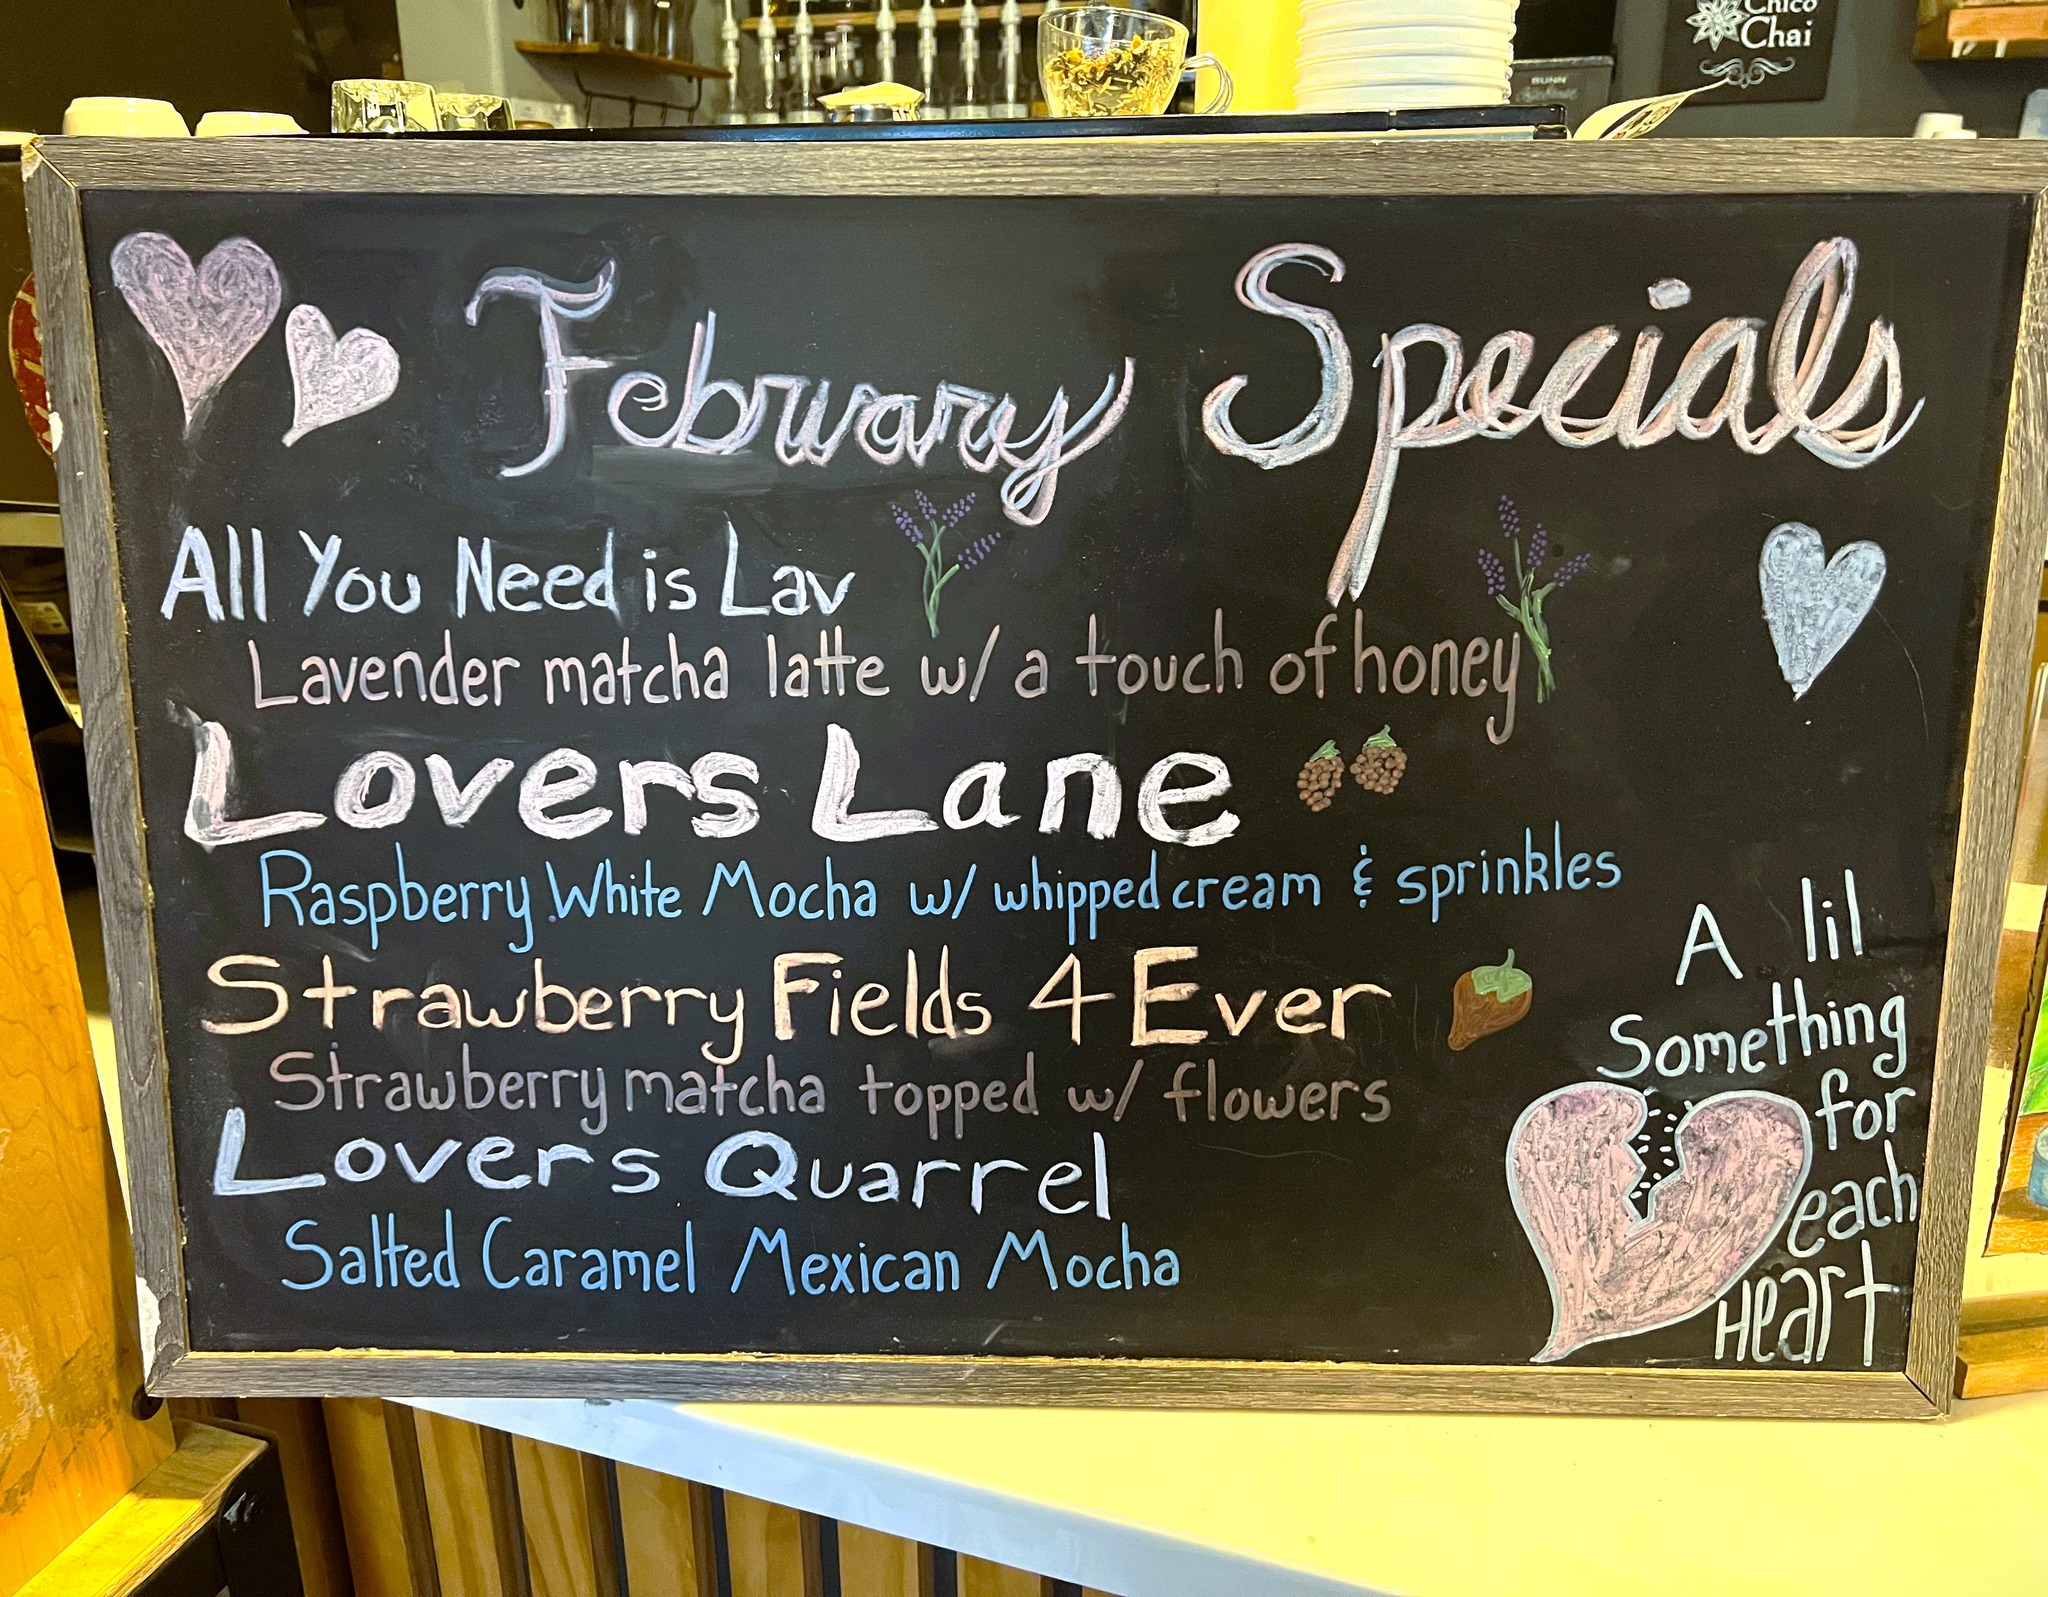 Chico
Chai
BUNN
February Specials
All You Need is Lav
Lavender matcha latte w/ a touch of honey
Lovers Lane
Raspberry White Mocha w/ whipped cream & sprinkles
Strawberry Fields 4 Ever
Strawberry matcha topped w/ flowers
Lovers Quarrel
Salted Caramel Mexican Mocha
A lil
Something
for
each
Heart